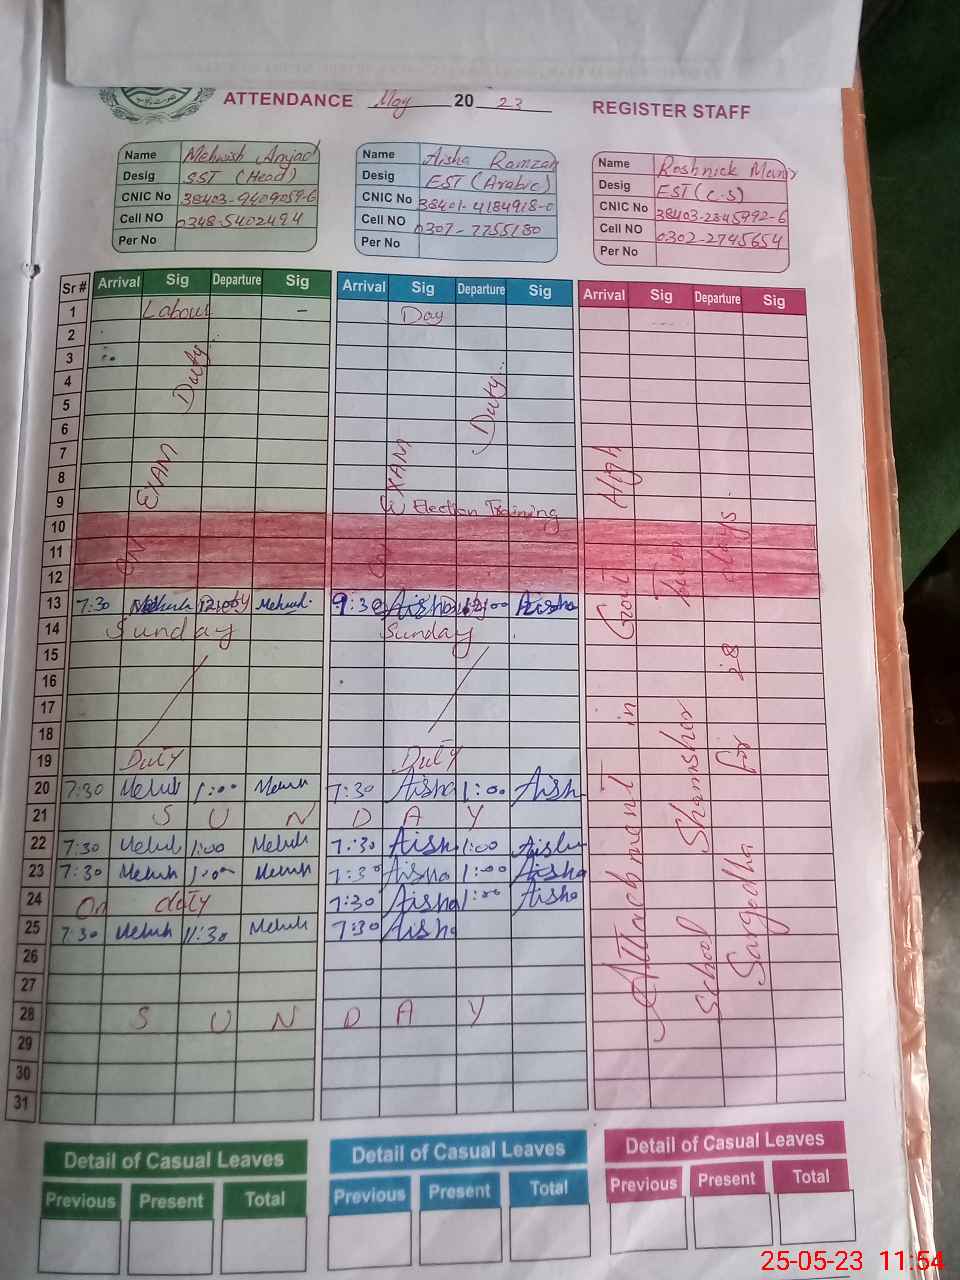 ATTENDANCE May 20 23 REGISTER STAFF
Name Mehwish Amjad
Desig SST (Head)
CNIC No 38403-9409059-6
Cell NO 0348-5402494
Per No
Name Aisha Ramzan
Desig EST (Arabic)
CNIC No 38401-4184918-0
Cell NO 0307-7755180
Per No
Name Roshnick
Desig EST (C.S)
CNIC No 38403-2845992-6
Cell NO 0302-2745654
Per No
Sr # Arrival Sig Departure Sig Arrival Sig Departure Sig Arrival Sig Departure Sig
1 Labour - Day
2
3
4
5
6
7
8
9 Election Training
10
11
12
ON EXAM Duty
ON EXAM Duty
13 7:30 12:00 Mehwish 9:30 Aisha 12:00 Aisha
14 Sunday Sunday
15
16
17
18
19 Duty Duty
20 7:30 Mehwish 1:00 Mehwish 7:30 Aisha 1:00 Aisha
21 S U N D A Y
22 7:30 Mehwish 1:00 Mehwish 7:30 Aisha 1:00 Aisha
23 7:30 Mehwish 1:00 Mehwish 7:30 Aisha 1:00 Aisha
24 On duty 7:30 Aisha 1:00 Aisha
25 7:30 Mehwish 11:30 Mehwish 7:30 Aisha
26
27
28 S U N D A Y
29
30
31
Attachment in Govt High
School Shamsher Town
Sargodha for 28 days.
Detail of Casual Leaves Detail of Casual Leaves Detail of Casual Leaves
Previous Present Total Previous Present Total Previous Present Total
25-05-23 11:54